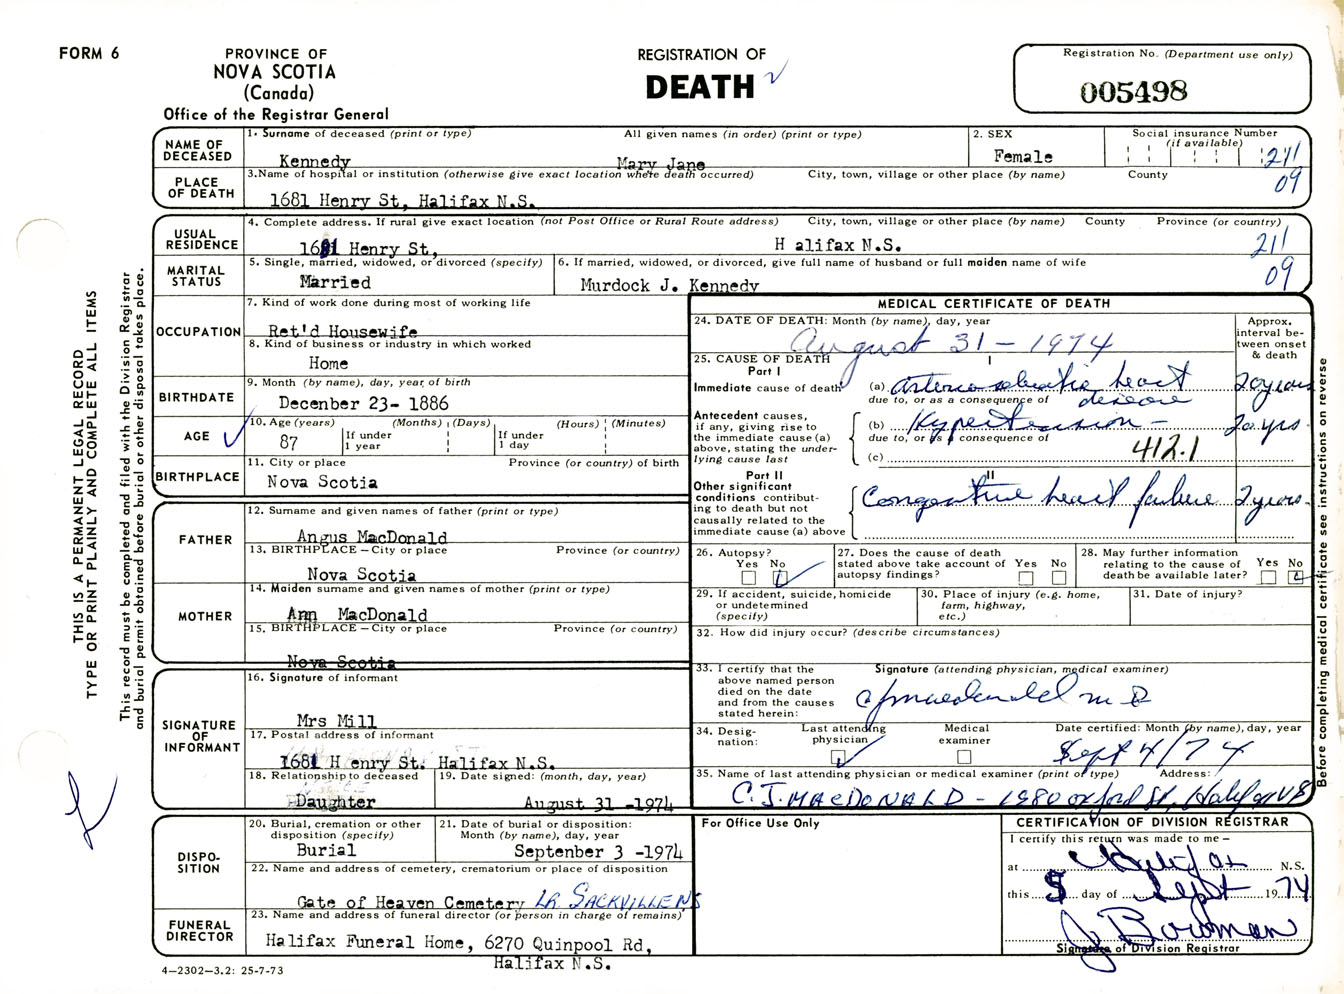 FORM 6
PROVINCE OF
NOVA SCOTIA
(Canada)
Office of the Registrar General
REGISTRATION OF
DEATH
Registration No. (Department use only)
005498
NAME OF DECEASED
1. Surname of deceased (print or type) All given names (in order) (print or type)
Kennedy Mary Jane
2. SEX
Female
Social insurance Number (if available)
211
09
PLACE OF DEATH
3. Name of hospital or institution (otherwise give exact location where death occurred) City, town, village or other place (by name) County
1681 Henry St, Halifax N.S.
USUAL RESIDENCE
4. Complete address. If rural give exact location (not Post Office or Rural Route address) City, town, village or other place (by name) County Province (or country)
1681 Henry St, H alifax N.S.
211
09
MARITAL STATUS
5. Single, married, widowed, or divorced (specify)
Married
6. If married, widowed, or divorced, give full name of husband or full maiden name of wife
Murdock J. Kennedy
OCCUPATION
7. Kind of work done during most of working life
Ret'd Housewife
8. Kind of business or industry in which worked
Home
BIRTHDATE
9. Month (by name), day, year, of birth
Decenber 23- 1886
AGE
10. Age (years) (Months) (Days) (Hours) (Minutes)
87 If under 1 year If under 1 day
BIRTHPLACE
11. City or place Province (or country) of birth
Nova Scotia
FATHER
12. Surname and given names of father (print or type)
Angus MacDonald
13. BIRTHPLACE – City or place Province (or country)
Nova Scotia
MOTHER
14. Maiden surname and given names of mother (print or type)
Ann MacDonald
15. BIRTHPLACE – City or place Province (or country)
Nova Scotia
SIGNATURE OF INFORMANT
16. Signature of informant
Mrs Mill
17. Postal address of informant
1681 H enry St. Halifax N.S.
18. Relationship to deceased
Daughter
19. Date signed: (month, day, year)
August 31 -1974
DISPO-
SITION
20. Burial, cremation or other disposition (specify)
Burial
21. Date of burial or disposition: Month (by name), day, year
Septenber 3 -1974
22. Name and address of cemetery, crematorium or place of disposition
Gate of Heaven Cemetery LR SACKVILLE NS
FUNERAL DIRECTOR
23. Name and address of funeral director (or person in charge of remains)
Halifax Funeral Home, 6270 Quinpool Rd,
Halifax N.S.
4–2302–3.2: 25-7-73
MEDICAL CERTIFICATE OF DEATH
24. DATE OF DEATH: Month (by name), day, year
August 31 – 1974
Approx. interval be-
tween onset & death
25. CAUSE OF DEATH
Part I I
Immediate cause of death (a) arteriosclerotic heart disease 20 years
due to, or as a consequence of
Antecedent causes, if any, giving rise to the immediate cause (a) above, stating the under-
lying cause last
(b) Hypertension – 20 yrs.
due to, or as a consequence of
(c) 412.1
Part II II
Other significant conditions contribut-
ing to death but not causally related to the immediate cause (a) above
Congestive heart failure 2 years.
26. Autopsy?
Yes No
27. Does the cause of death stated above take account of autopsy findings?
Yes No
28. May further information relating to the cause of death be available later?
Yes No
29. If accident, suicide, homicide or undetermined (specify)
30. Place of injury (e.g. home, farm, highway, etc.)
31. Date of injury?
32. How did injury occur? (describe circumstances)
33. I certify that the above named person died on the date and from the causes stated herein:
Signature (attending physician, medical examiner)
CJ MacDonald M D
34. Desig-
nation:
Last attending physician
Medical examiner
Date certified: Month (by name), day, year
Sept 4/74
35. Name of last attending physician or medical examiner (print or type) Address:
C.J. MACDONALD – 1980 oxford St, Halifax NS
For Office Use Only
CERTIFICATION OF DIVISION REGISTRAR
I certify this return was made to me –
at Halifax N.S.
this 5 day of Sept 1974
J Bowman
Signature of Division Registrar
THIS IS A PERMANENT LEGAL RECORD
TYPE OR PRINT PLAINLY AND COMPLETE ALL ITEMS
This record must be completed and filed with the Division Registrar
and burial permit obtained before burial or other disposal takes place.
Before completing medical certificate see instructions on reverse